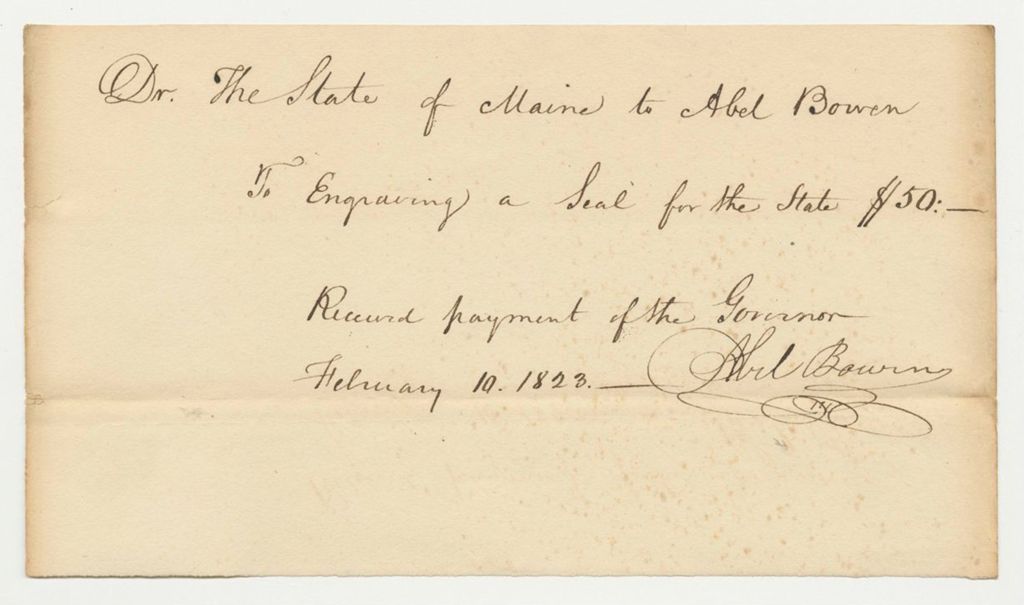 Dr. The State of Maine to Abel Bowen
To Engraving a Seal for the State $50:—
Received payment of the Governor
February 10. 1823.— Abel Bowen